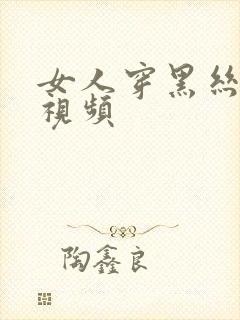 女人穿黑絲
視頻
陶鑫良